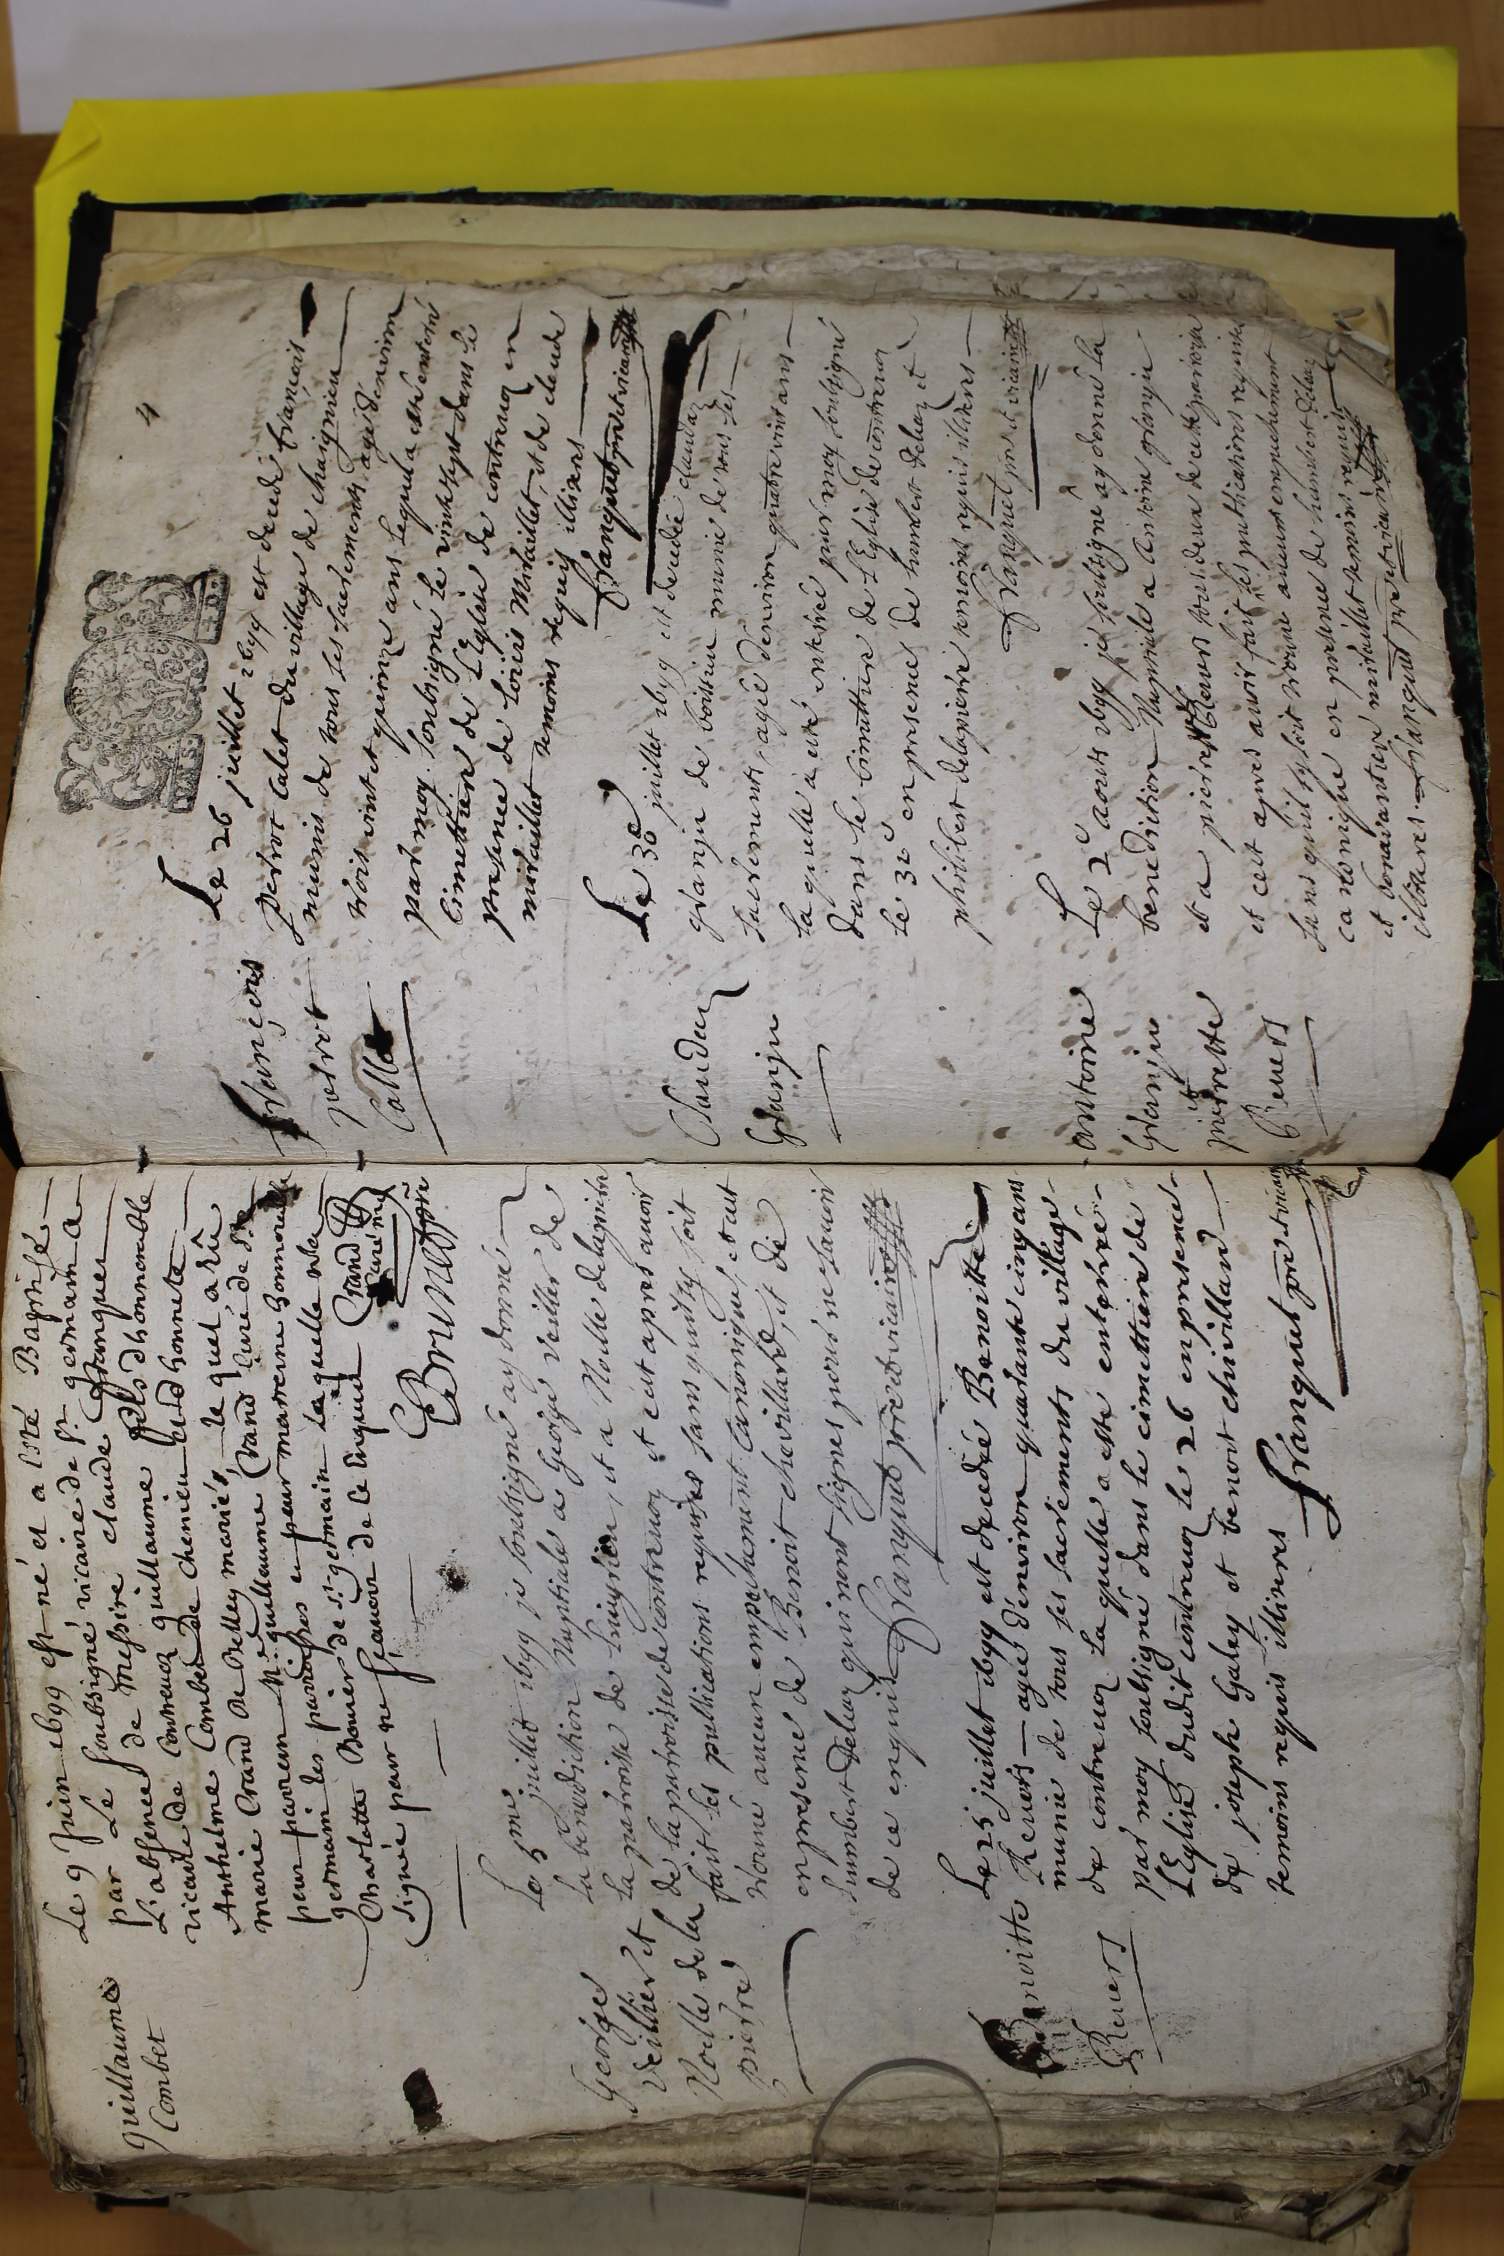 Guillaume
Combet
Le 9 Juin 1699 est né et a esté Baptisé
par Le soubsigné vicaire de St germain a
L'absence de Messire claude franquet
vicaire de Contrevoz guillaume fils d'honnorable
Anthelme Combet de chemieu et d'honneste
marie Crand de Belley mariés, le quel a eû
pour parrein Mre guillaume Crand Curé de St
germain les paroisses et pour marrenne honnorable
Charlotte Bonier de St germain laquelle n'a
signé pour ne sçavoir de ce enquise Crand
Curé
Brunet ptre
George
Veillier et
Noelle de la
pierre
Le 5me juillet 1699 je soussigné ay donné
la benediction Nuptiale a George Veillier de
la paroisse de et a Noelle delapierre
de la paroisse de contrevoz et cest apres avoir
fait les publications requises sans quil sy soit
trouvé aucun empechement canonique, et cest
en presence de Benoit chevilliard, et de
humbert Deluaz qui nont signes pour ne sçavoir
de ce enquis Franquet prêtre et vicaire
Benoitte
Reuers
Le 25 juillet 1699 est decedée Benoitte
Reuers agée d'environ quarante cinq ans
munie de tous ses sacrements du village
de contrevoz la quelle a esté enterrée
par moy soubsigné dans le cimettiere de
l'Eglise dudit contrevoz le 26 en presence
de joseph Galey et benoit chivillard
temoins requis illiteres
Franquet prê et vicaire
4
François
perrot
Callet
Le 26 juillet 1699 est decedé françois
perrot Calet du village de chaignieu
munis de tous ses sacrements agé d'environ
trois vint et quinze ans lequel a esté enterré
par moy soubsigné le vintsept dans le
Cimettiere de l'Eglise de contrevoz en
presence de loüis Miraillet, et de claude
miraillet temoins requis illiteres
Franquet prêt et vicaire
Claudaz
Granju
Le 30e juillet 1699 est decedée claudaz
granju de boissieu munie de tous ses
sacrements, agée d'environ quatre vint ans
laquelle à esté enterrée par moy soussigné
dans le Cimettiere de l'Eglise de contrevoz
le 31e en presence de humbert deluaz et
philibert delapierre temoins requis illiteres
Franquet pre et vicaire
antoine
Granju
et
pierrette
Reuers
Le 2e aoust 1699 je soussigné ay donné la
benediction Nuptiale a Antoine granju
et a pierrette Reuers tous deux de cette paroisse
et cest apres avoir fait les publications requises
sans quil sy soit trouvé aucun empechement
canonique en presence de humbert deluaz
et miraillet temoins requis
illiteres. Franquet prê et vicaire